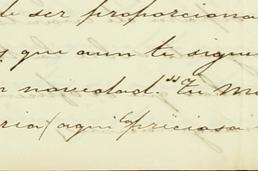 de ser proporciona
que aun te sigue
novedad. "Tu Ma
ria) aqui la preciosa